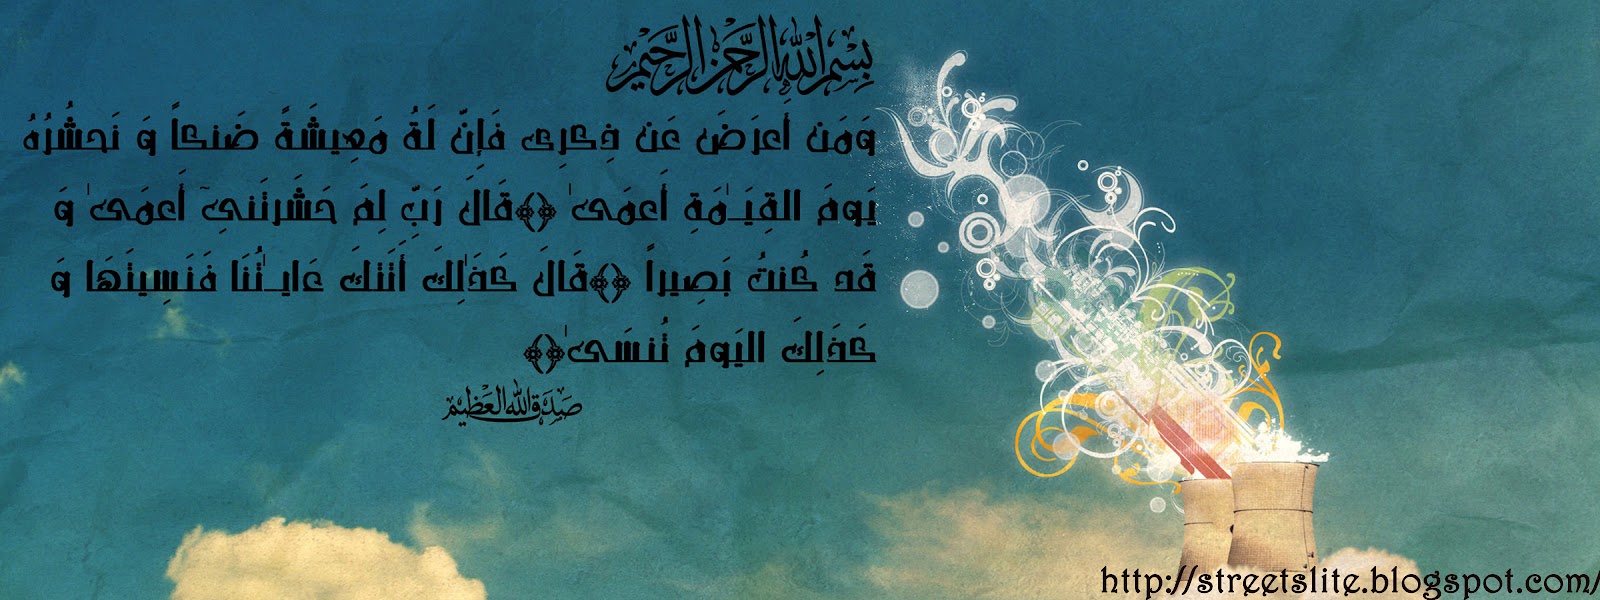 بِسْمِ اللهِ الرَّحْمٰنِ الرَّحِيْمِ
وَمَن أَعرَضَ عَن ذِكرِى فَإِنّ لَهُ مَعِيشَةً ضَنكاً وَ نَحشُرُهُ
يَومَ القِيَـٰمَةِ أَعمَىٰ ﴿﴾قَالَ رَبِّ لِمَ حَشَرتَنِىٓ أَعمَىٰ وَ
قَد كُنتُ بَصِيراً ﴿﴾قَالَ كَذَٰلِكَ أَتَتكَ ءَايـٰتُنَا فَنَسِيتَهَا وَ
كَذَلِكَ اليَومَ تُنسَىٰ﴿﴾
صَدَقَ اللهُ العَظِيم
http://streetslite.blogspot.com/